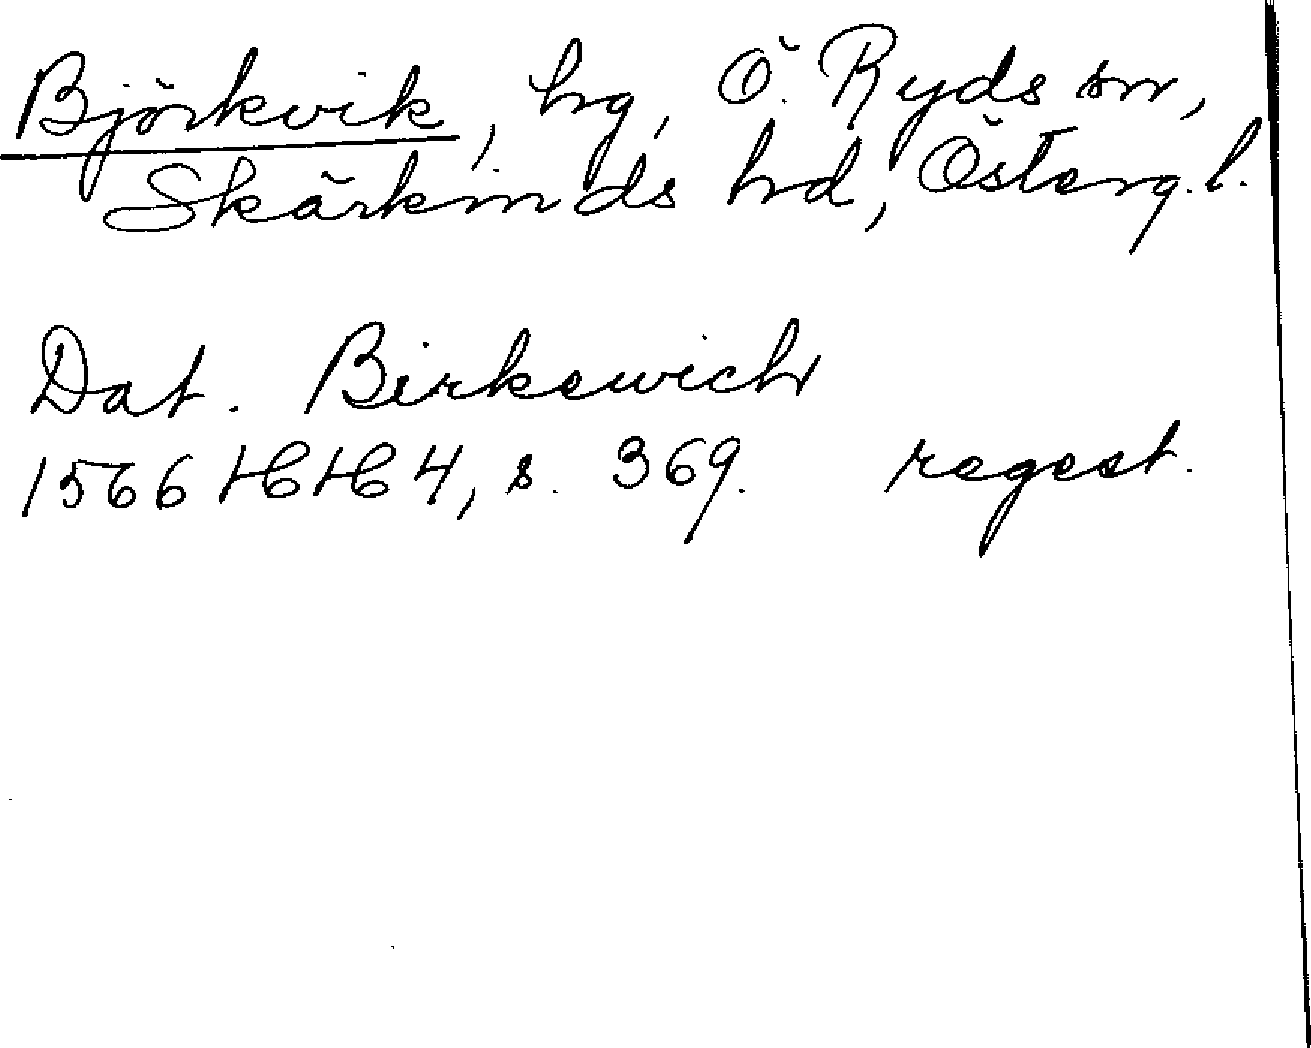 Björkvik, hg, Ö. Ryds sn,
Skärkinds hd, Österg. l.
Dat. Birkewich
1566 HH 4, s. 369. regest.